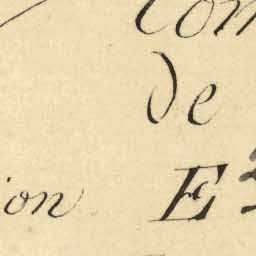 Com
de
ion E